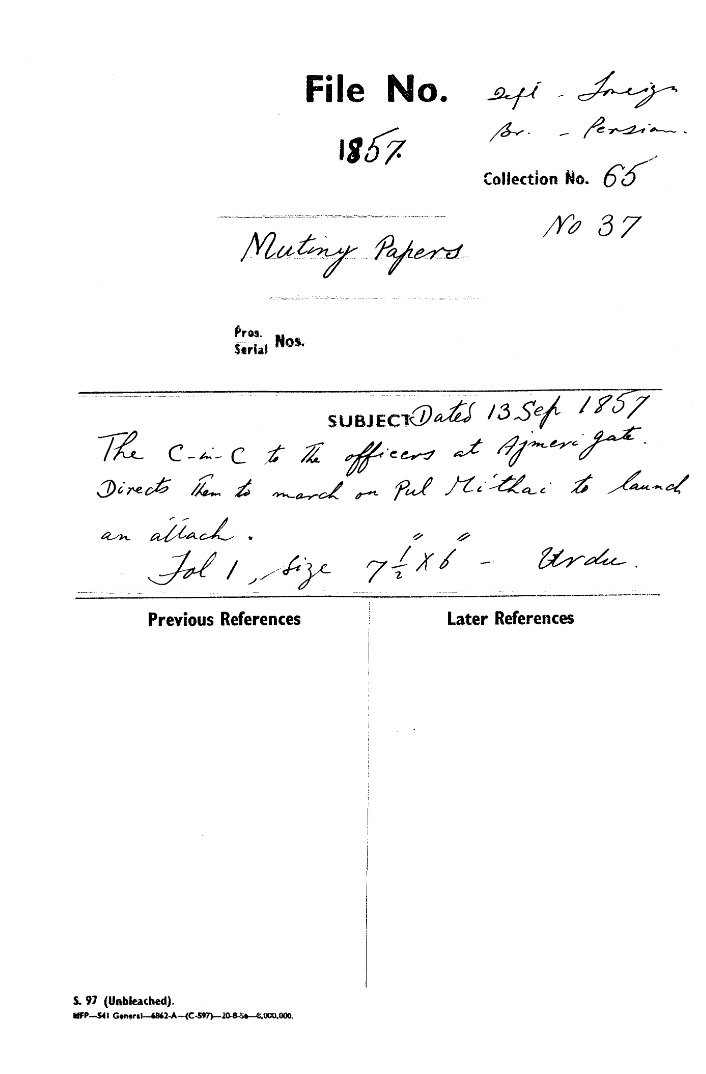 File No.
Dept - Foreign
Br. - Persian.
1857.
Collection No. 65
No 37
Mutiny Papers
Pros.
Serial Nos.
SUBJECT Dated 13 Sep 1857
The C-in-C to the officers at Ajmeri gate.
Directs them to march on Pul Mithai to launch
an attack.
Fol 1, Size 7 1/2" X 6" - Urdu.
Previous References
Later References
S. 97 (Unbleached).
MFP—541 General—6862-A—(C-597)—20-8-56—8,000,000.